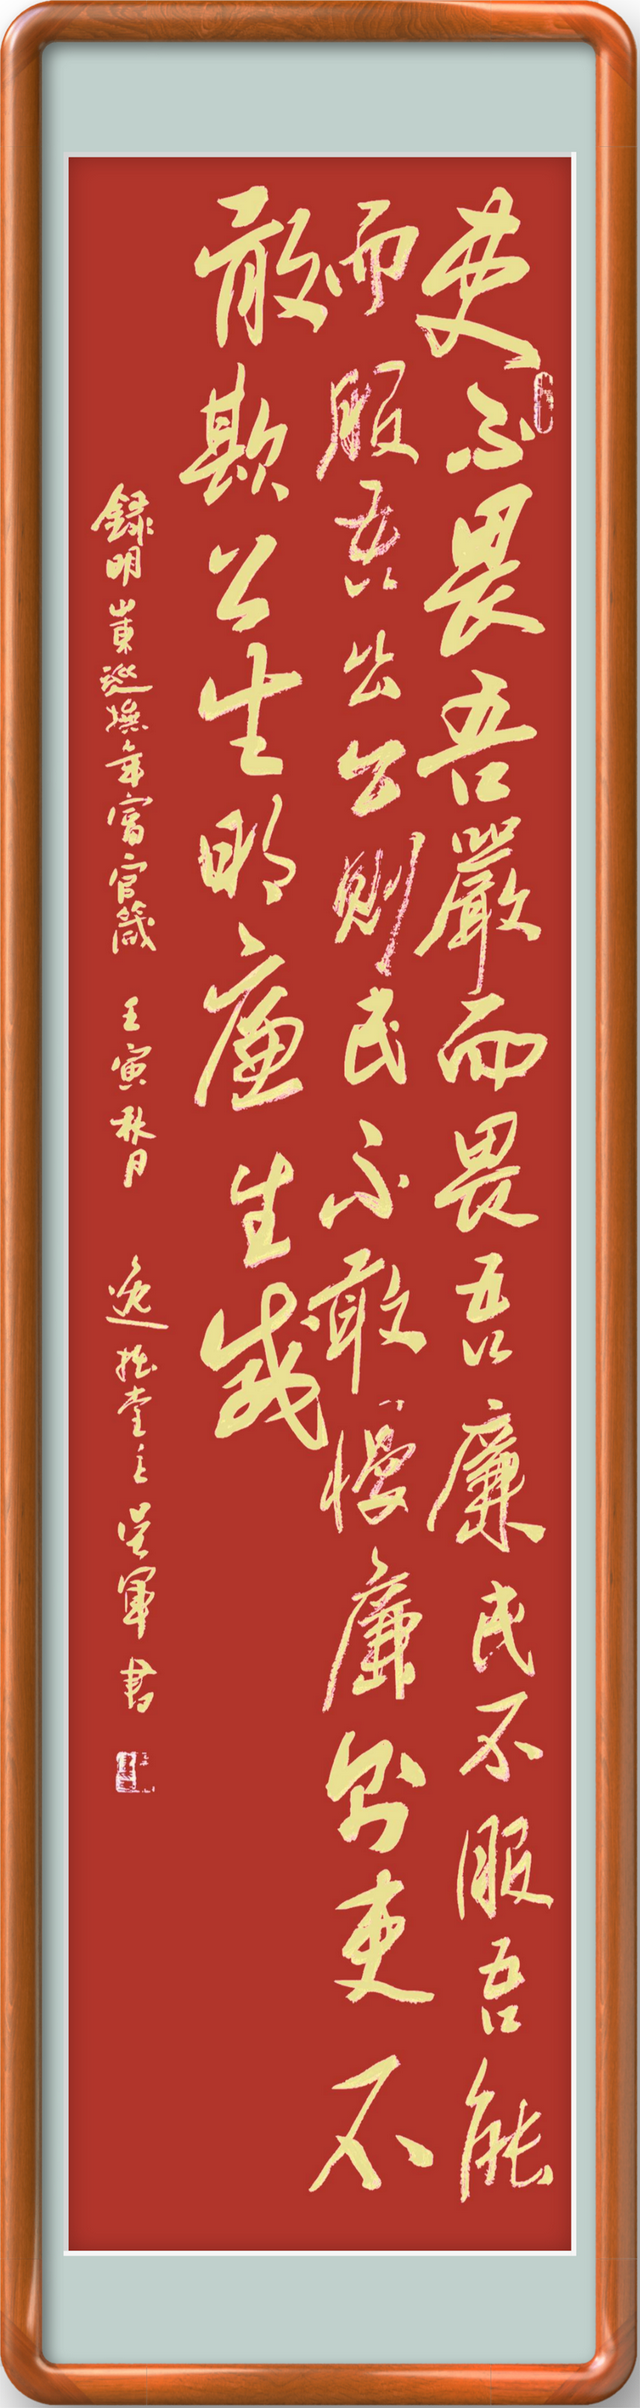 吏不畏吾嚴而畏吾廉民不服吾能
而服吾公公則民不敢慢廉則吏不
敢欺公生明廉生威
錄明山東巡撫年富官箴 壬寅秋月 逸拙堂主吴軍書